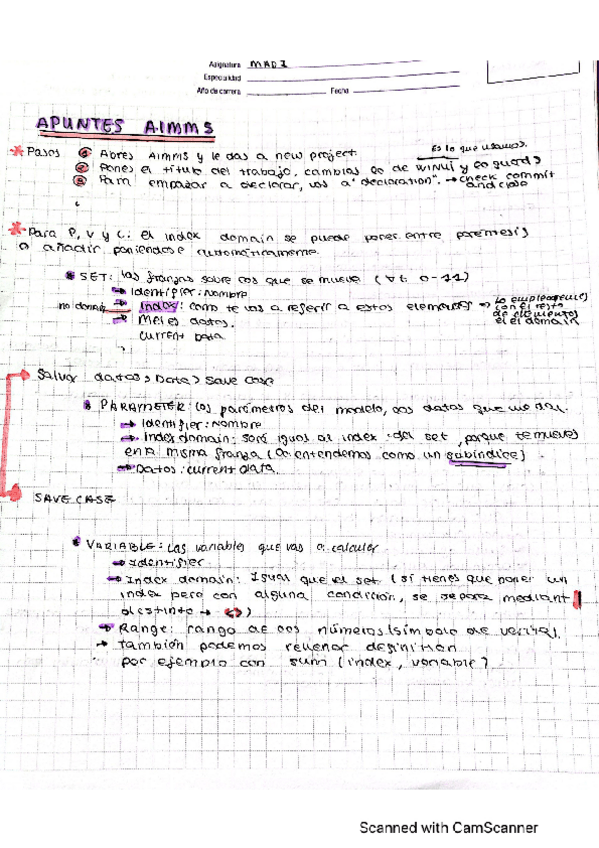 Asignatura MAD I
Especialidad
Año de carrera Fecha
APUNTES AIMMS
* Pasos ① Abres Aimms y le das a new project
Es lo que usamos.
② Pones el título del trabajo, cambias lo de WINUI y lo guardas
③ Para empezar a declarar, vas a "declaration". → check commit
and close
* Para P, V y C: el index domain se puede poner entre paréntesis
o añadir poniendose automáticamente.
SET: las franjas sobre las que se mueve (∀t 0-11)
→ Identifier: Nombre
no domain → Index: como te vas a referir a estos elementos → lo emplearemos
con el resto
de elementos
el domain
→ Metes datos.
current data
Salvar datos > Data > Save Case
PARAMETER: los parámetros del modelo, los datos que me dan.
→ Identifier: Nombre
→ Index domain: será igual al index del set, porque te mueves
en la misma franja (lo entendemos como un subíndice)
→ Datos: current data.
SAVE CASE
VARIABLE: Las variables que vas a calcular
→ Identifier
→ Index domain: Igual que el set (si tienes que poner un
index pero con alguna condición, se separa mediant |
distinto → <>)
→ Range: rango de los números
→ también podemos rellenar definition
por ejemplo con sum (index, variable)
Scanned with CamScanner